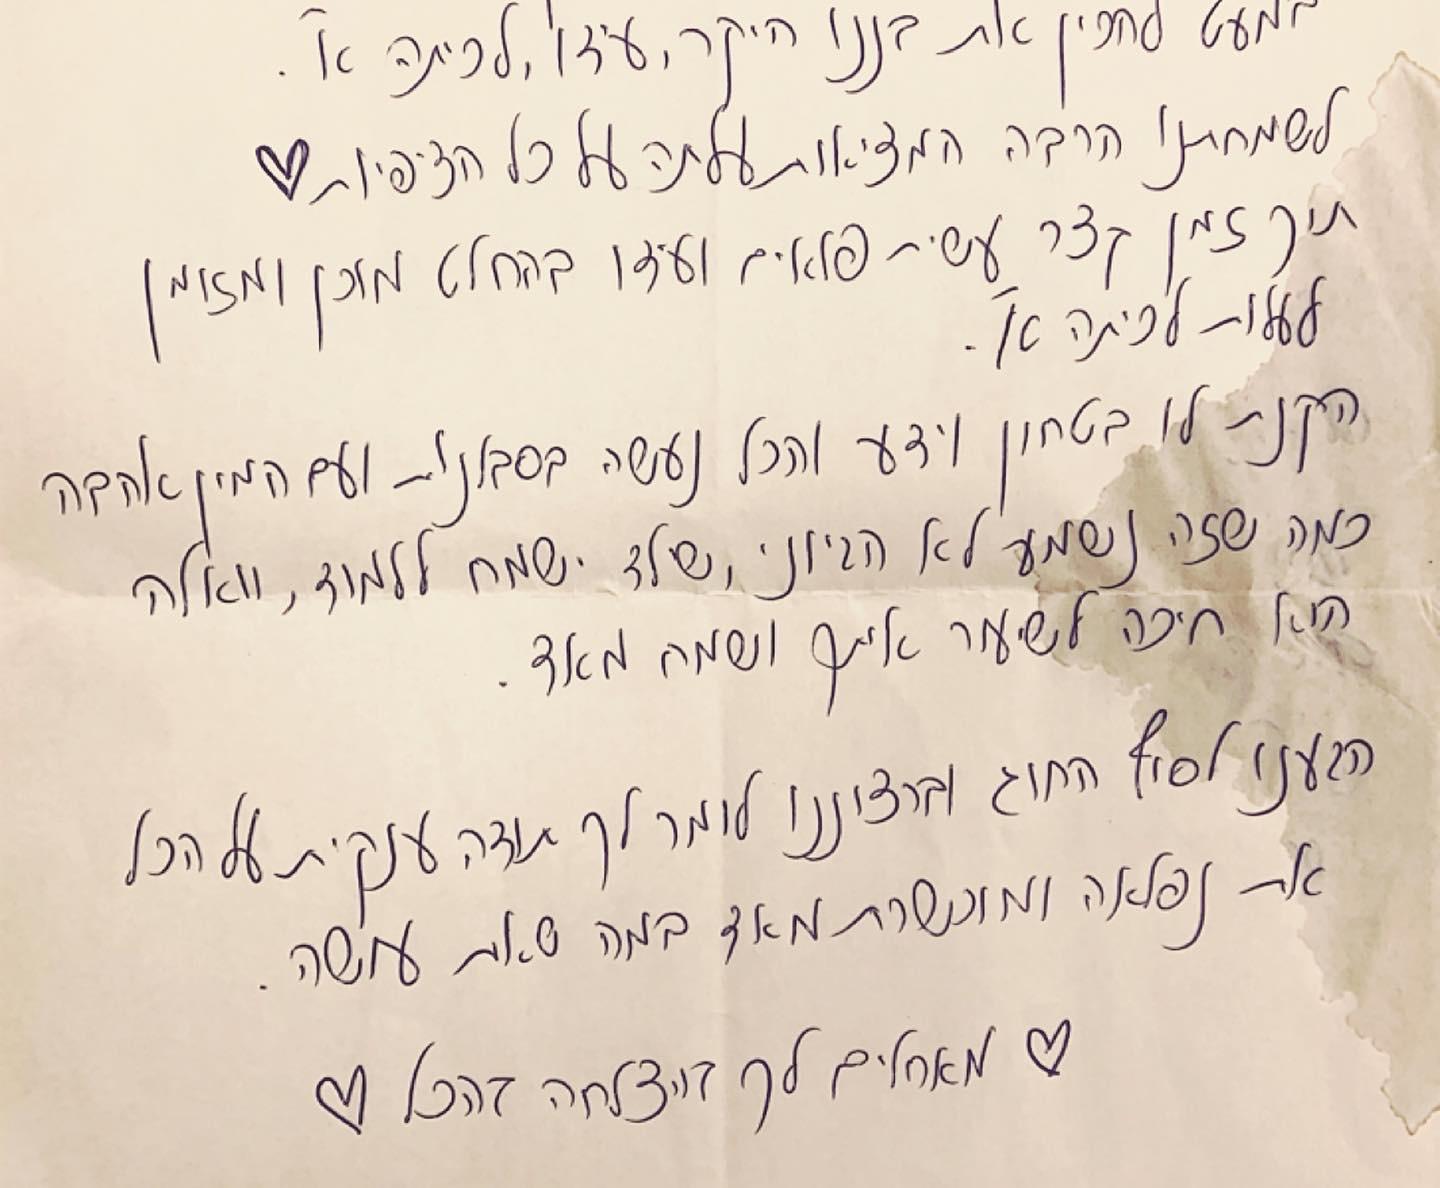 במעט להכין את בננו היקר, עידו, לכיתה א'.
לשמחתנו הרבה המציאות עלתה על כל הציפיות ♥
תוך זמן קצר עשית פלאים ועידו בהחלט מוכן ומזומן
לעלות לכיתה א'.
הקנת לו בטחון וידע והכל נעשה בסבלנות ועם המון אהבה
כמה שזה נשמע לא הגיוני, שילד ישמח ללמוד, וואלה
הוא חיכה לשיעור איתך ושמח מאד.
הגענו לסוף החוג וברצוננו לומר לך תודה ענקית על הכל
את נפלאה ומוכשרת מאד במה שאת עושה.
♡ מאחלים לך בהצלחה בהכל ♡